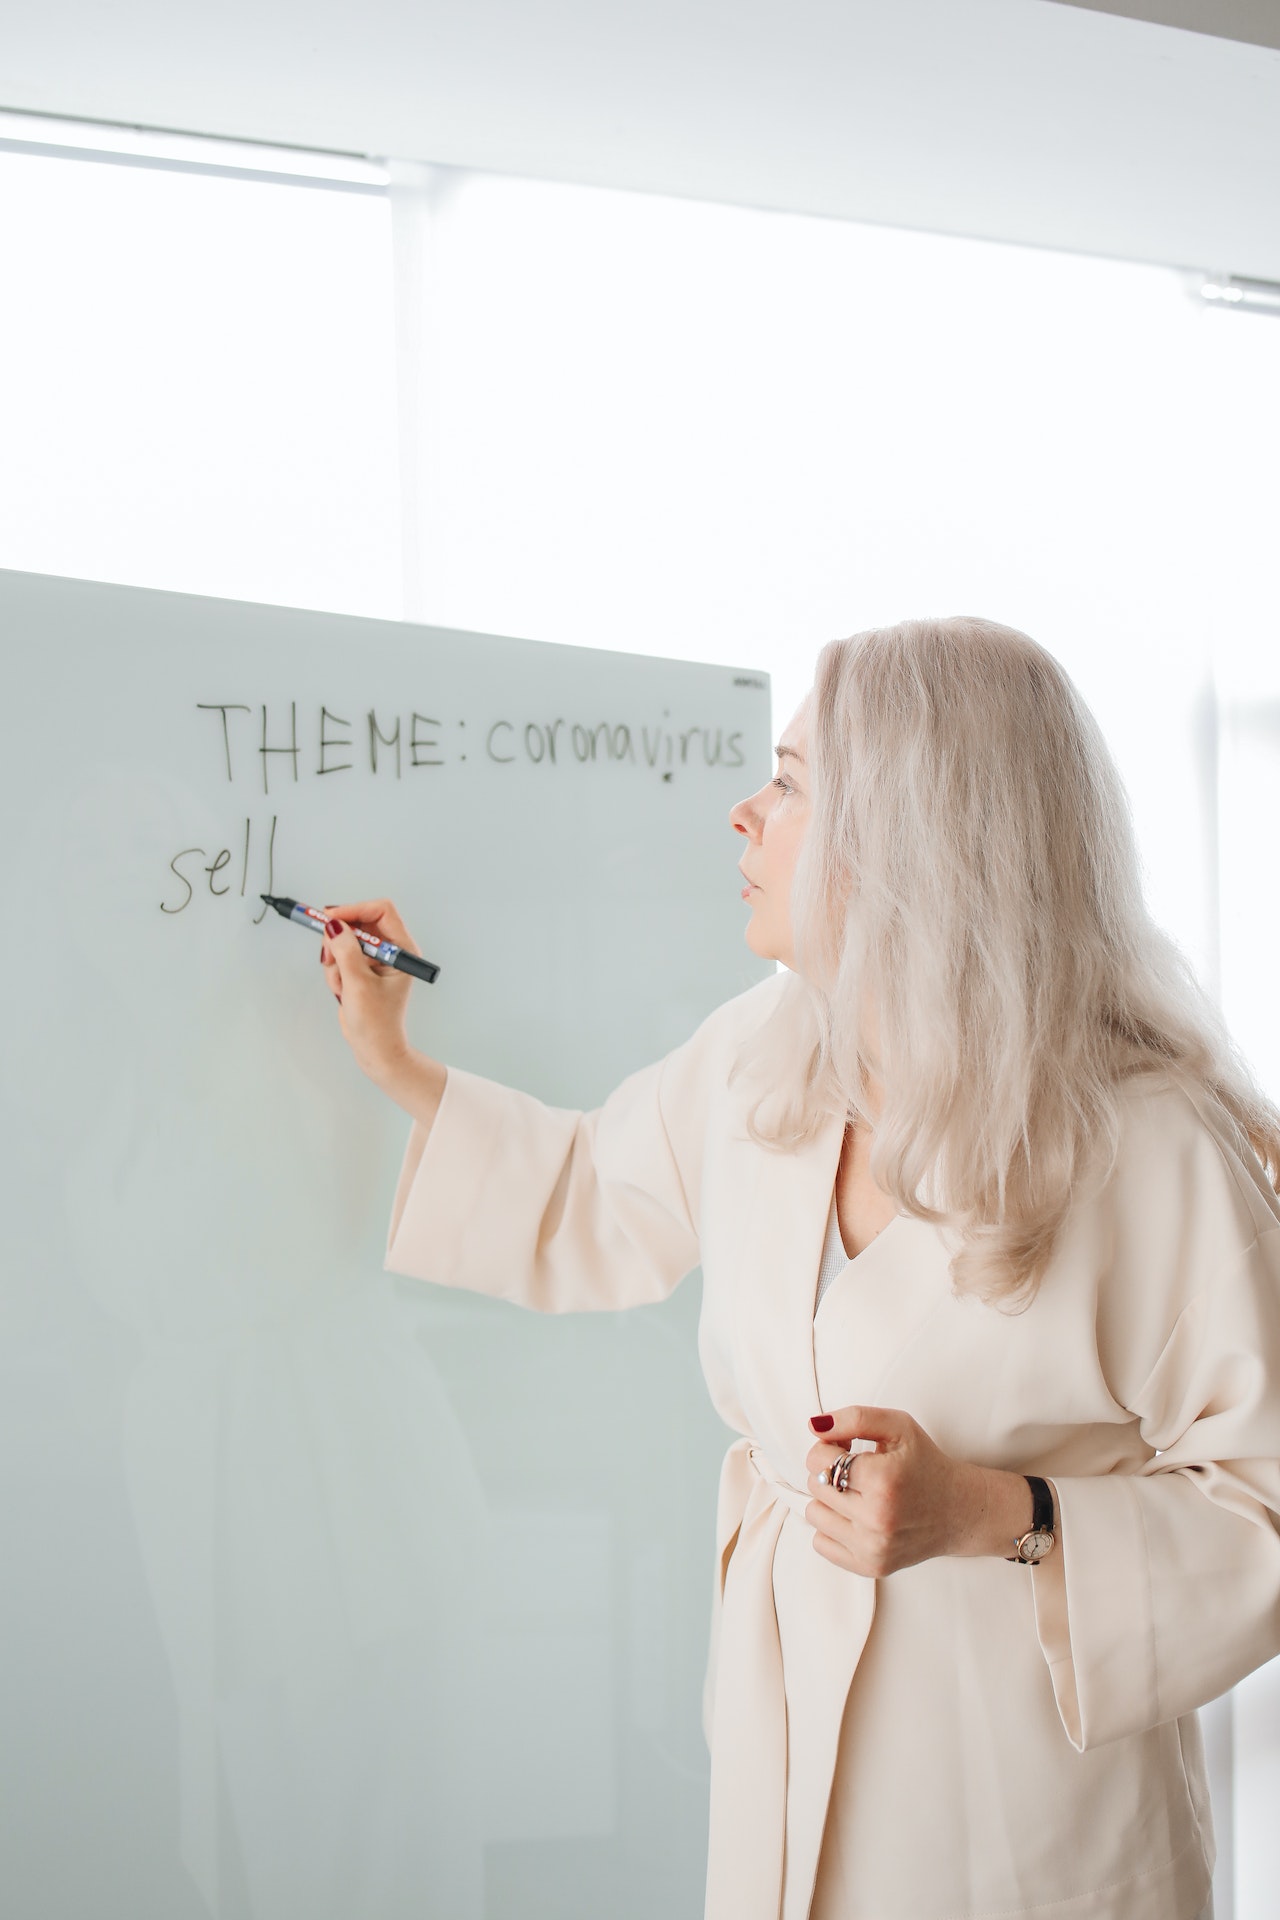 THEME: coronavirus
self